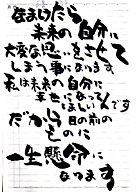 なまけたら
未来の自分に
大変な思いをさせて
しまう事になります
私は未来の自分に
幸せになって
ほしいんです
だから目の前の
ものに
一生懸命に
なります